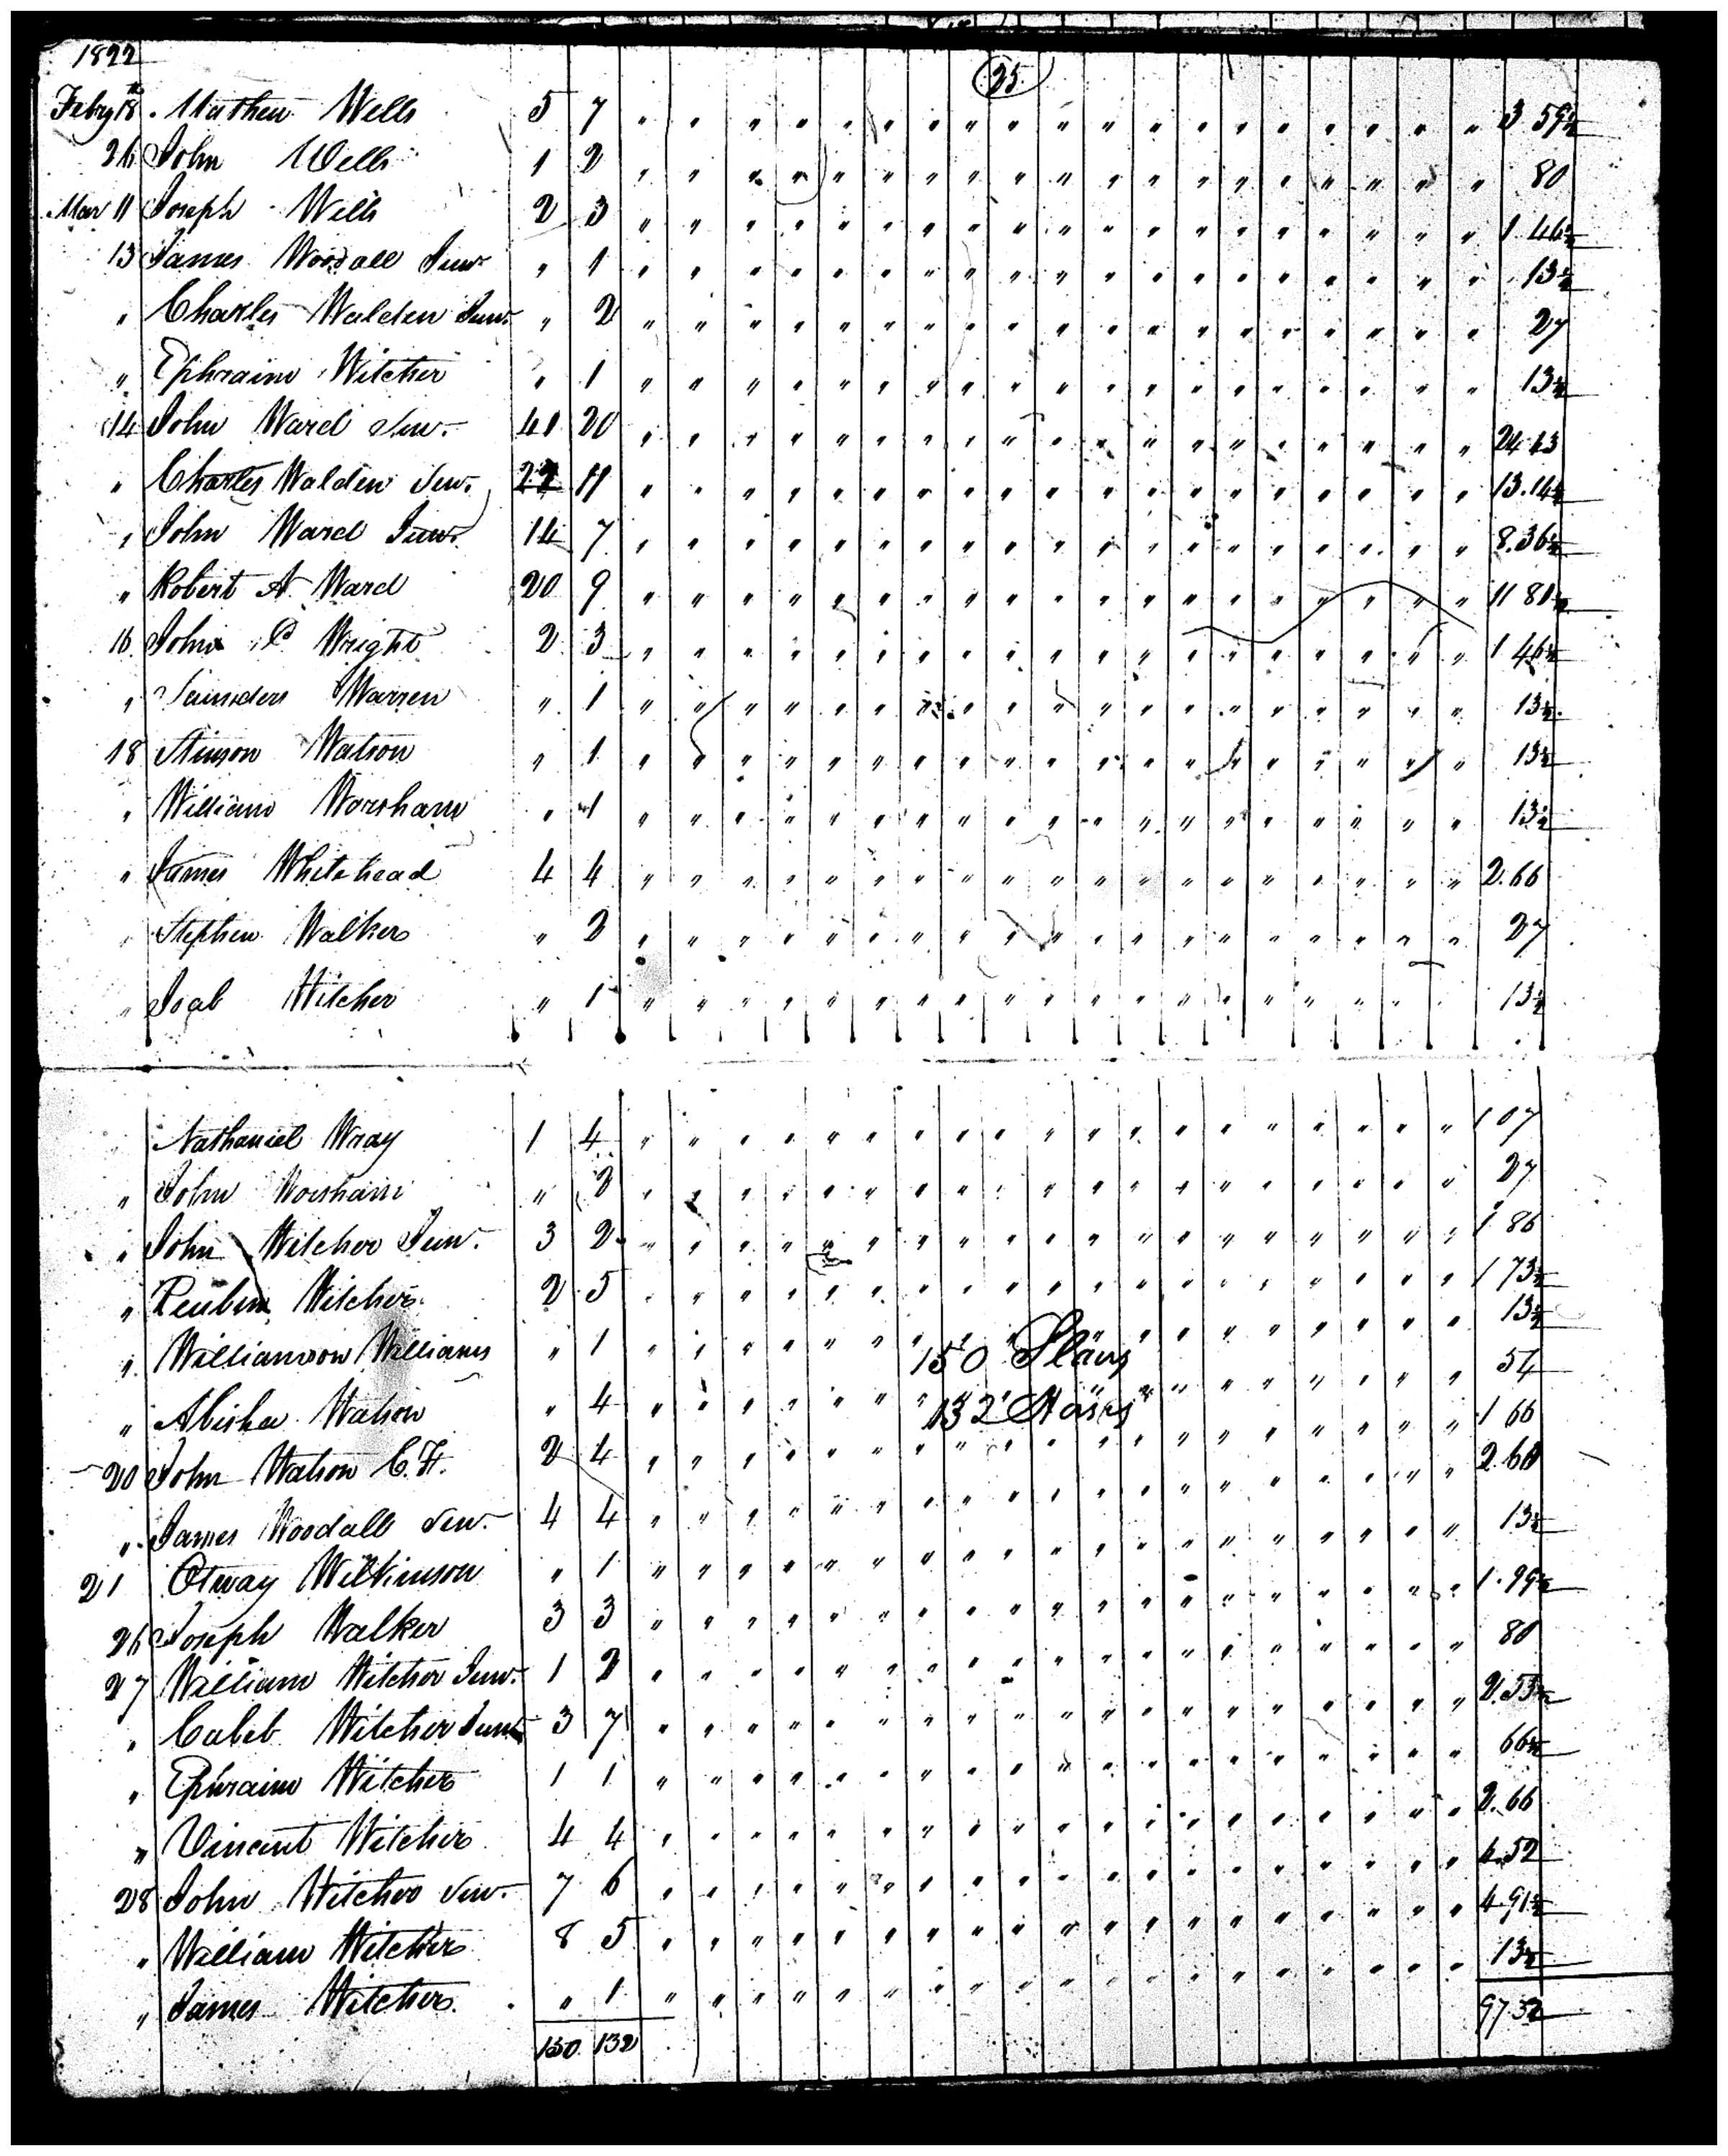 1822
25
Feby 18th Mathew Wells 5 7 " " " " " " " " " " " " " " " " " " " 3 59½
26 John Wells 1 2 " " " " " " " " " " " " " " " " " " " 80
Mar 11 Joseph Wells 2 3 " " " " " " " " " " " " " " " " " " " 1 46½
13 James Woodall Junr " 1 " " " " " " " " " " " " " " " " " " " 13½
" Charles Walden Junr " 2 " " " " " " " " " " " " " " " " " " " 27
" Ephraim Witcher " 1 " " " " " " " " " " " " " " " " " " " 13½
14 John Ward Senr. 41 20 " " " " " " " " " " " " " " " " " " " 24 43
" Charles Walden Senr. 22 11 " " " " " " " " " " " " " " " " " " " 13.14½
" John Ward Junr. 14 7 " " " " " " " " " " " " " " " " " " " 8.36½
" Robert A Ward 20 9 " " " " " " " " " " " " " " " " " " " 11 81½
16 John P Wright 2 3 " " " " " " " " " " " " " " " " " " " 1 46½
" Saunders Warren " 1 " " " " " " " " " " " " " " " " " " " 13½
18 Stinson Watson " 1 " " " " " " " " " " " " " " " " " " " 13½
" William Worsham " 1 " " " " " " " " " " " " " " " " " " " 13½
" James Whitehead 4 4 " " " " " " " " " " " " " " " " " " " 2.66
" Stephen Walker " 2 " " " " " " " " " " " " " " " " " " " 27
" Joab Witcher " 1 " " " " " " " " " " " " " " " " " " " 13½
" Nathaniel Wray 1 4 " " " " " " " " " " " " " " " " " " " 1 07
" John Worsham " 2 " " " " " " " " " " " " " " " " " " " 27
" John Witcher Junr. 3 2 " " " " " " " " " " " " " " " " " " " 1 86
" Reubin Witcher 2 5 " " " " " " " " " " " " " " " " " " " 1 73½
" Williamson Williams " 1 " " " " " " " " " " " " " " " " " " " 13½
150 Slaves
" Abisha Watson " 4 " " " " " " " " " " " " " " " " " " " 54
132 Horses
20 John Watson C.H. 2 4 " " " " " " " " " " " " " " " " " " " 1 66
" James Woodall Senr. 4 4 " " " " " " " " " " " " " " " " " " " 2.66
21 Otway Wilkinson " 1 " " " " " " " " " " " " " " " " " " " 13½
26 Joseph Walker 3 3 " " " " " " " " " " " " " " " " " " " 1.99½
27 William Witcher Junr. 1 2 " " " " " " " " " " " " " " " " " " " 80
" Caleb Witcher Junr 3 7 " " " " " " " " " " " " " " " " " " " 2.53½
" Ephraim Witcher 1 1 " " " " " " " " " " " " " " " " " " " 66½
" Vincent Witcher 4 4 " " " " " " " " " " " " " " " " " " " 2.66
28 John Witcher Senr. 7 6 " " " " " " " " " " " " " " " " " " " 4.52
" William Witcher 8 5 " " " " " " " " " " " " " " " " " " " 4.91½
" James Witcher " 1 " " " " " " " " " " " " " " " " " " " 13½
150 132 97 52